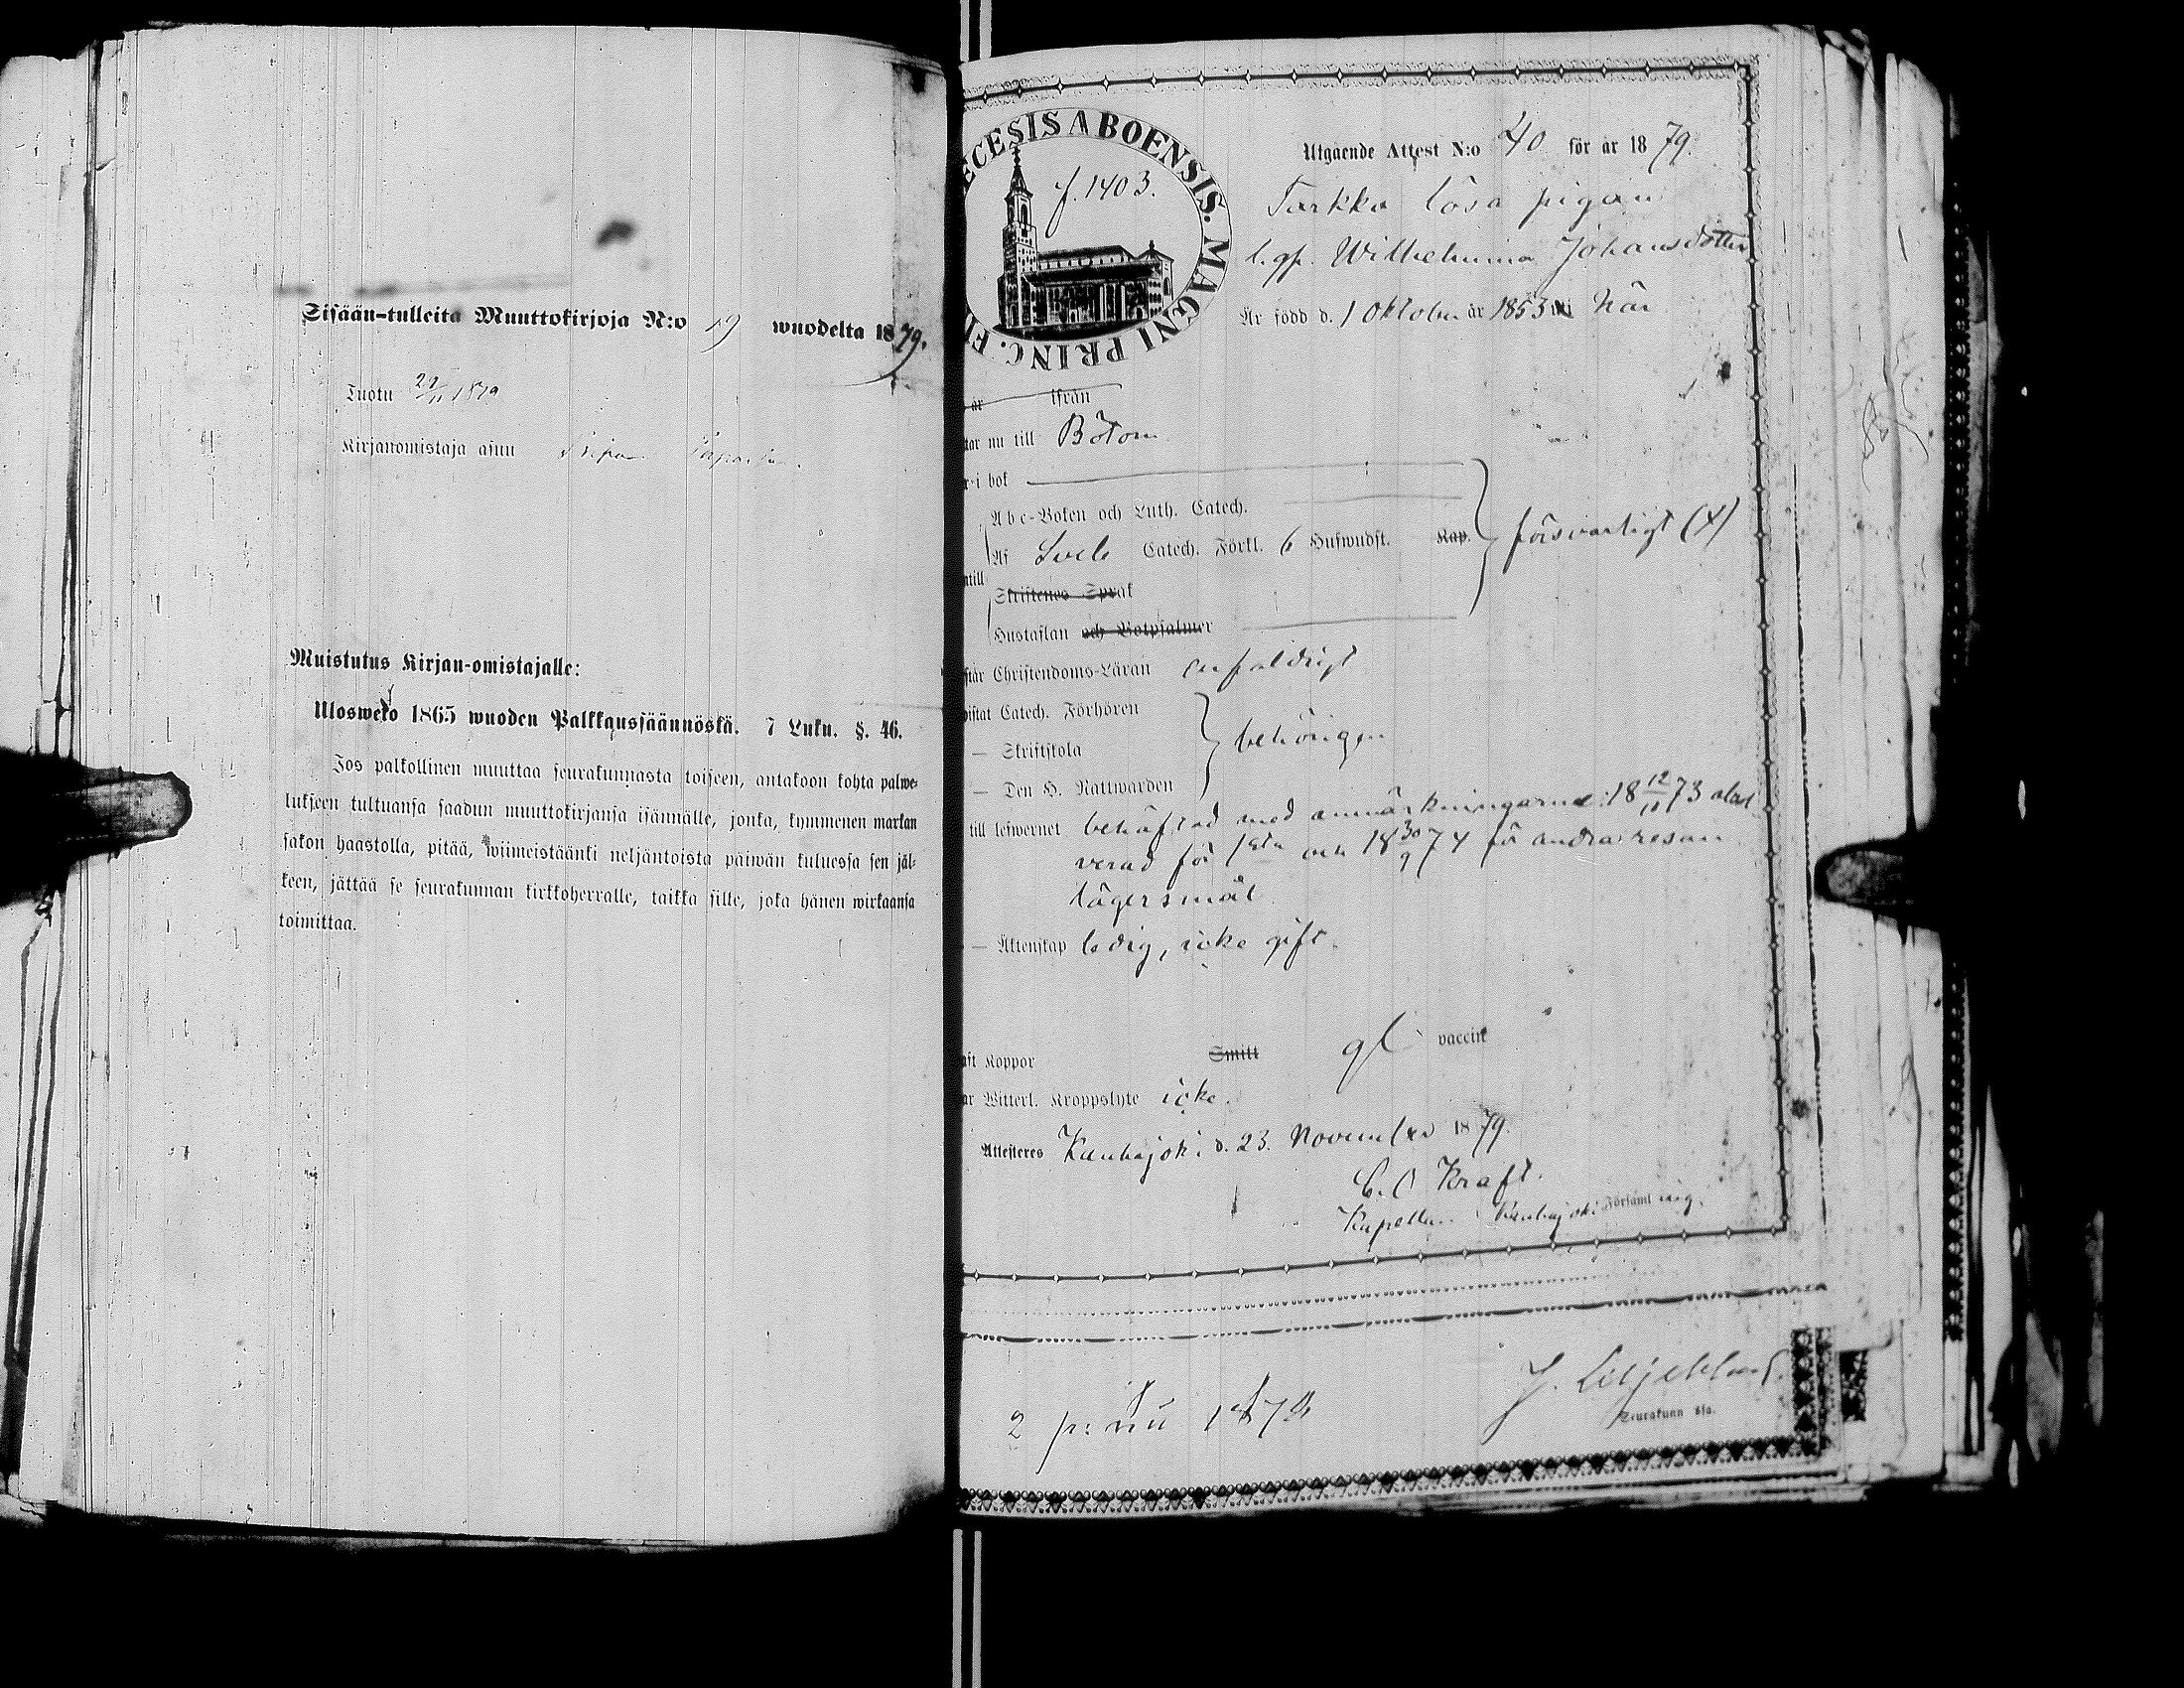 Sisään-tulleita Muuttokirjoja N:o 19 wuodelta 1879.
Tuotu 29/11 1879
Kirjanomistaja asuu
Muistutus Kirjan-omistajalle:
Ulosweto 1865 wuoden Palkkaussäännöstä. 7 Luku. §. 46.
Jos palkollinen muuttaa seurakunnasta toiseen, antakoon kohta palwe-
lukseen tultuansa saadun muuttokirjansa isännälle, jonka, kymmenen markan
sakon haastolla, pitää, wiimeistäänki neljäntoista päiwän kuluessa sen jäl-
keen, jättää se seurakunnan kirkkoherralle, taikka sille, joka hänen wirkaansa
toimittaa.
ECESIS ABOENSIS. MAGNI PRINC. FI
f. 1403.
Utgaende Attest N:o 40 för år 1879.
Tarkka lösa pigan
Wilhelmina Johansdotter
Är född d. 1 Oktober år 1853 i här
år ifrån
tar nu till Bötom
r i bok
Abc-Boken och Luth. Catech.
Af Sveb Catech. Förkl. 6 Hufwudst. Kap. försvarligt (4)
ntill
Skriftenes Språk
Hustaflan och Botpsalmer
står Christendoms-Läran enfaldigt
vistat Catech. Förhören
— Skriftskola behörigen
— Den H. Nattwarden
till lefwernet behäftad med anmärkningarne: 18 12/11 73 absol
verad för 1sta och 18 30/9 74 för andra resan
lägersmål.
— Äktenskap ledig, icke gift.
aft Koppor Smitt gl vaccin
ar Witterl. Kroppslyte icke.
Attesteres Kauhajoki d. 23. November 1879.
C. O Kraft.
Kapellan i Kauhajoki Församling.
J. Liljeblad.
2 p:
Seurakunn ssa.